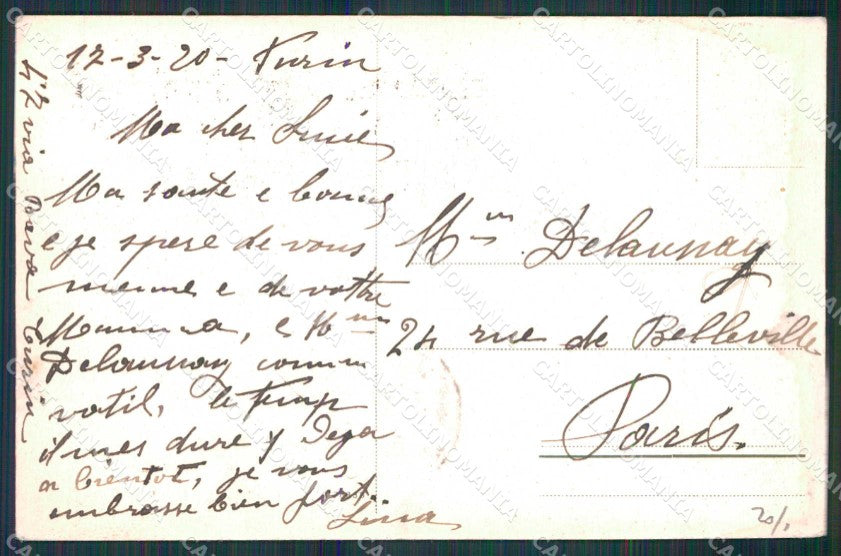 12-3-20- Turin
Ma cher Lucie
Ma sante e bonne
e je spere de vous
meme e de vottre
Mamma, e Mme
Delaunay comm
vatil, le temp
il mes dure
a bientot, je vous
embrasse bien fort.
Lina
47 via Bava Turin
Mme Delaunay
24 rue de Belleville
Paris.
20/1
CARTOLINOMANIA